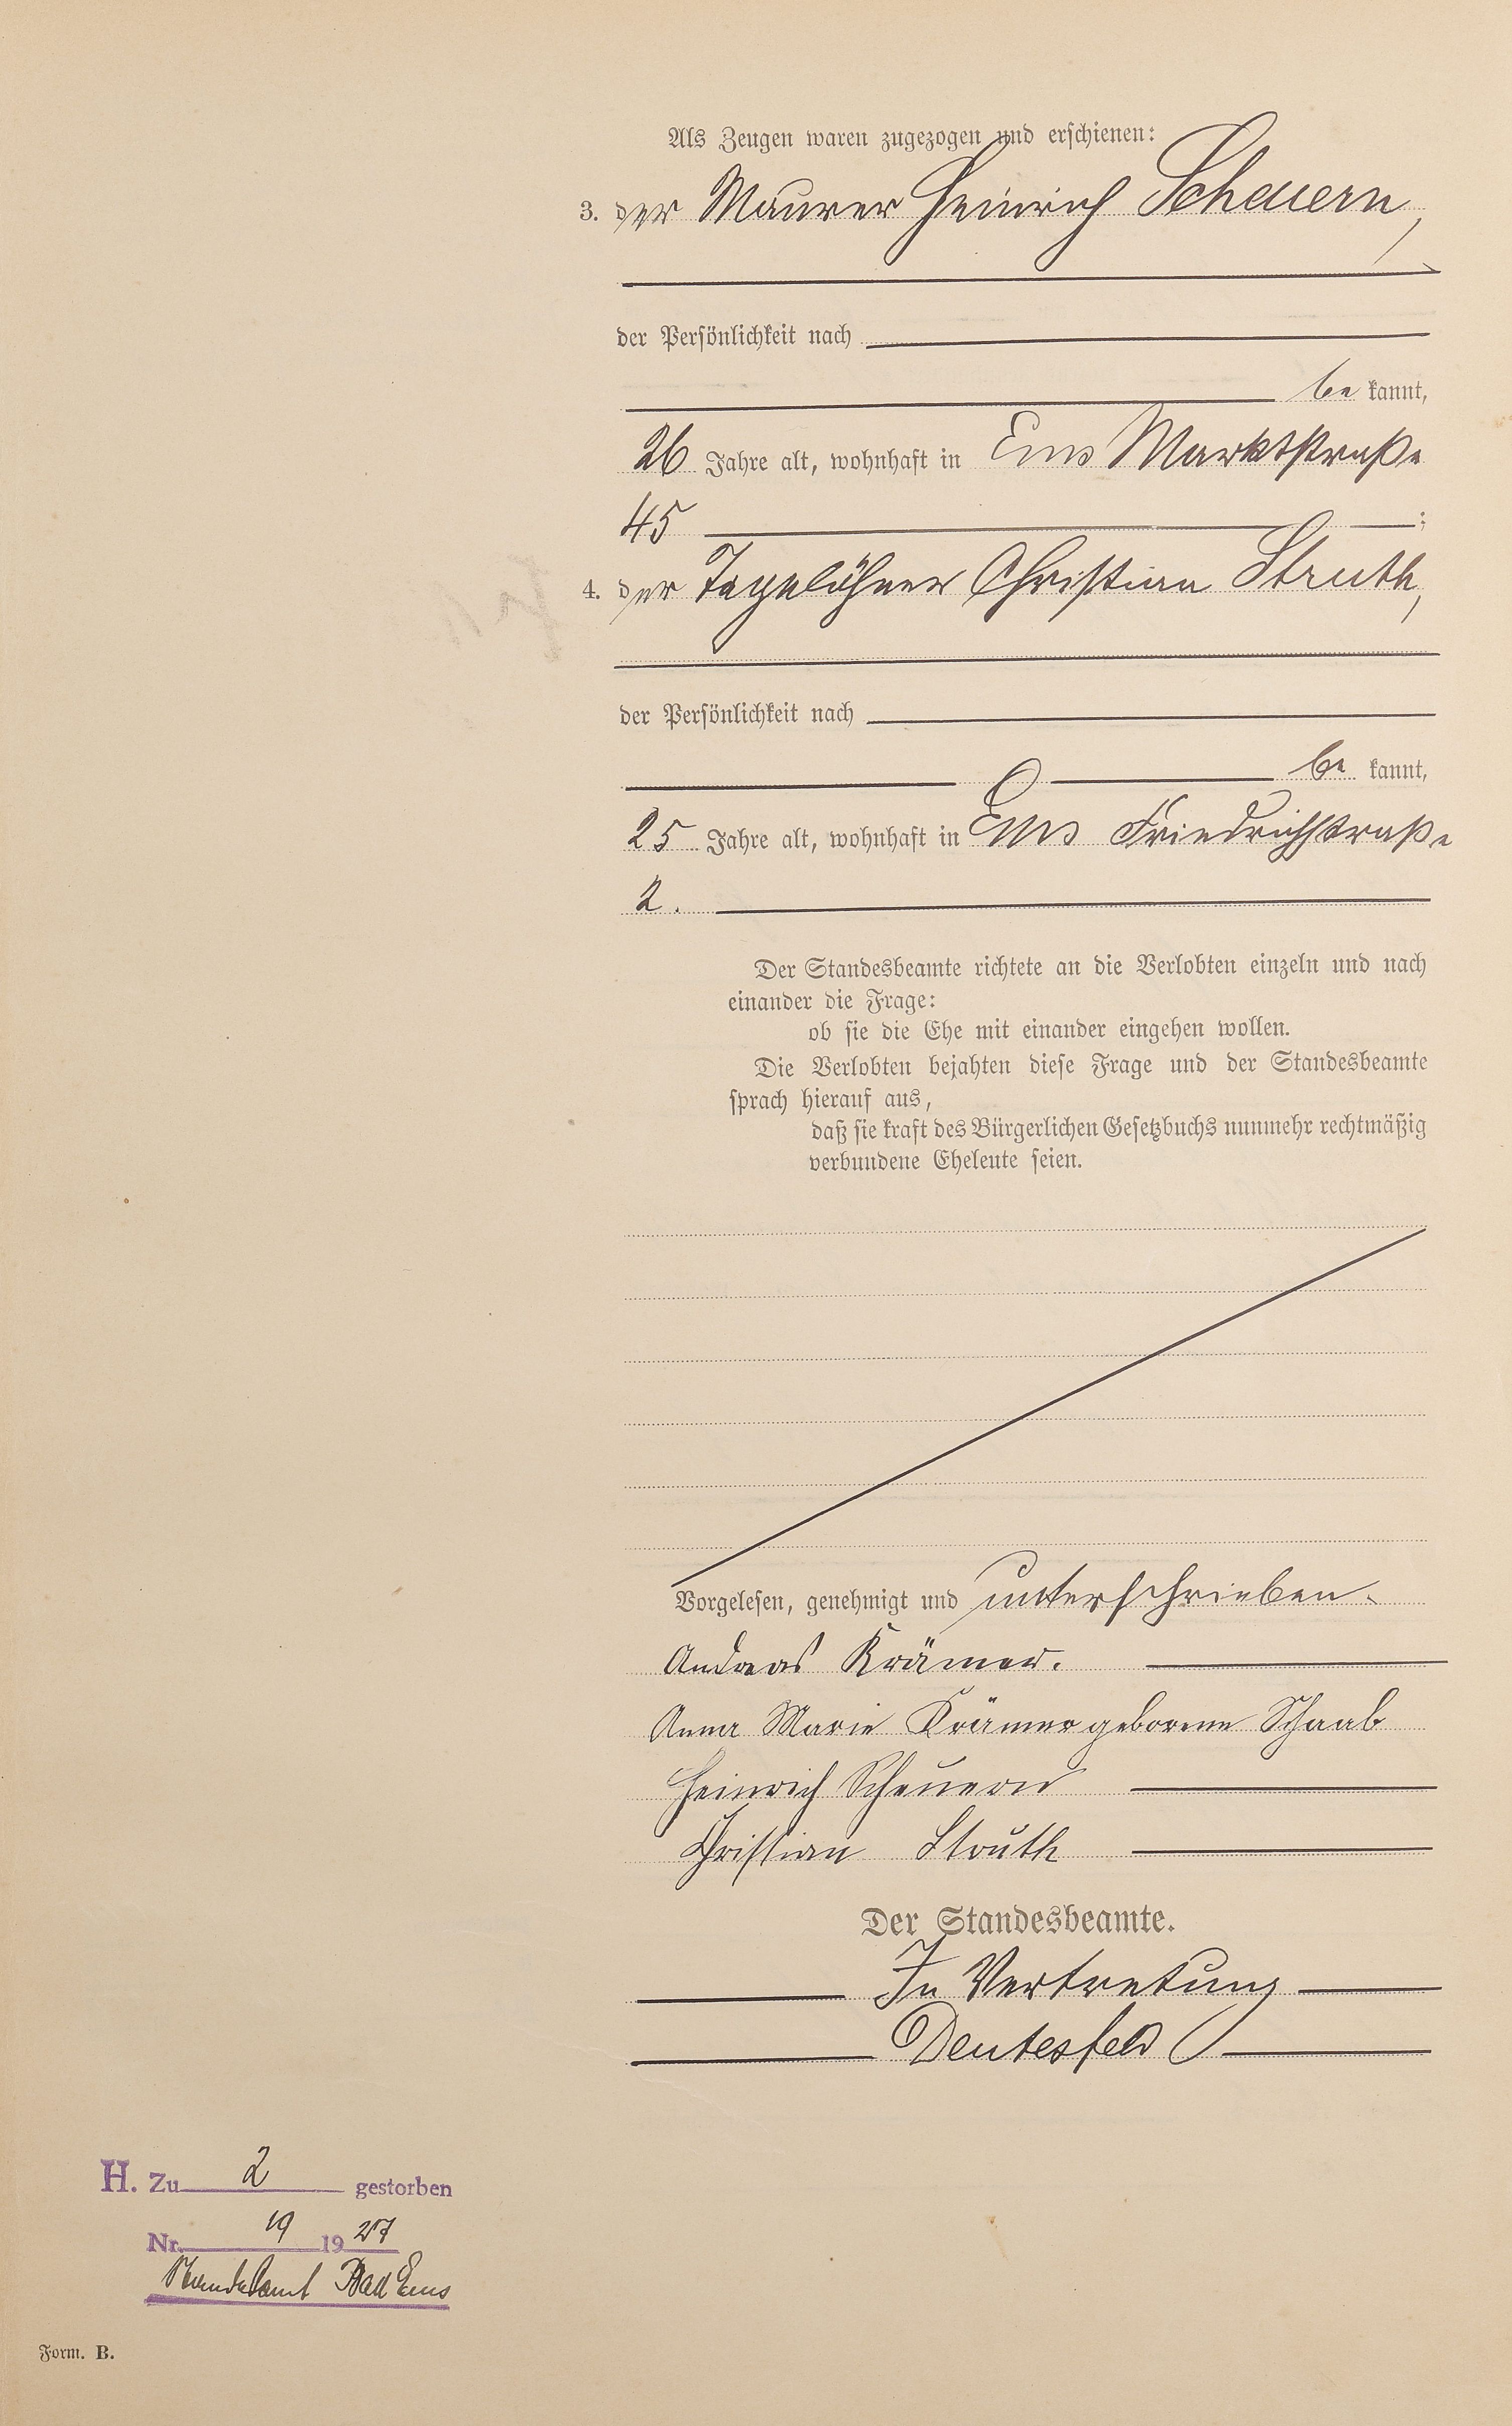 Als Zeugen waren zugezogen und erschienen:
3. der Maurer Heinrich Scheuern,
der Persönlichkeit nach
be kannt,
26 Jahre alt, wohnhaft in Ems Marktstraße
45 ;
4. der Tagelöhner Christian Struth,
der Persönlichkeit nach
be kannt,
25 Jahre alt, wohnhaft in Ems Friedrichstraße
2.
Der Standesbeamte richtete an die Verlobten einzeln und nach
einander die Frage:
ob sie die Ehe mit einander eingehen wollen.
Die Verlobten bejahten diese Frage und der Standesbeamte
sprach hierauf aus,
daß sie kraft des Bürgerlichen Gesetzbuchs nunmehr rechtmäßig
verbundene Eheleute seien.
Vorgelesen, genehmigt und unterschrieben.
Andreas Krämer.
Anna Marie Krämer geborene Schaab
Heinrich Scheuern
Christian Struth
Der Standesbeamte.
In Vertretung
Deutesfeld
H. Zu 2 gestorben
Nr. 19 1927
Standesamt Bad Ems
Form. B.